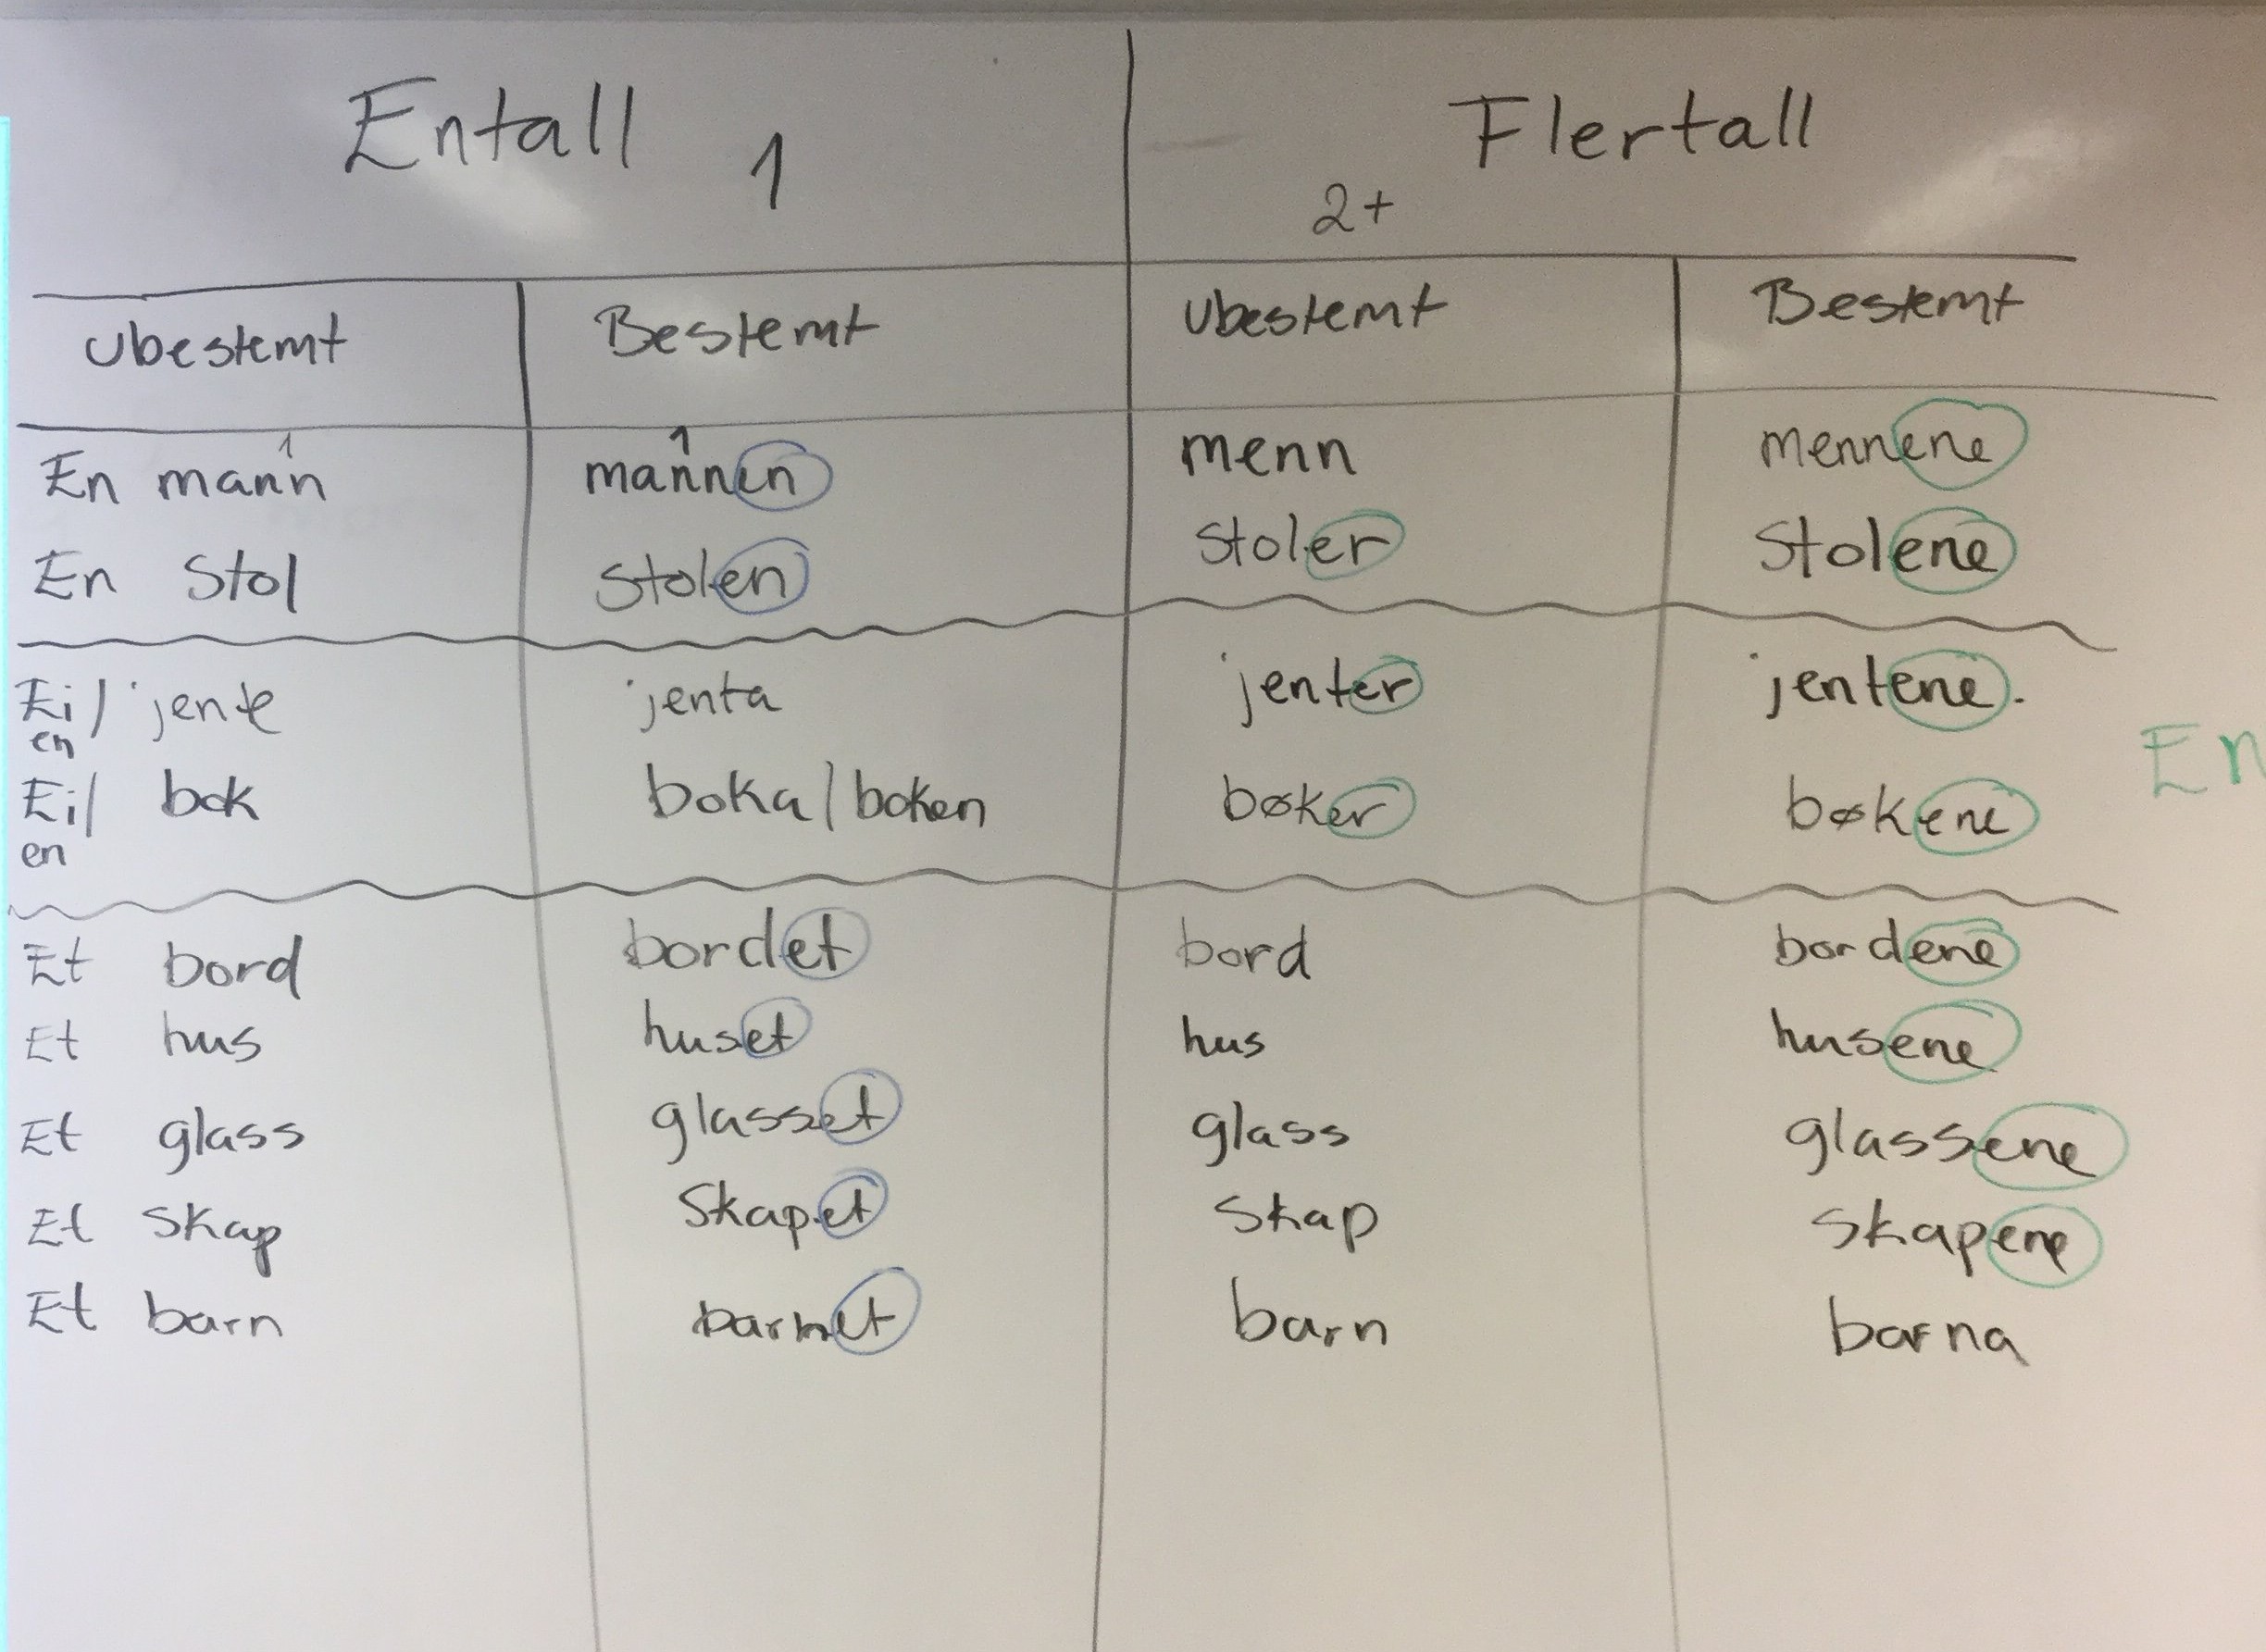 Entall 1 Flertall
2+
Ubestemt Bestemt Ubestemt Bestemt
1 1
En mann mannen menn mennene
En stol stolen stoler stolene
Ei/en jente jenta jenter jentene.
En
Ei/en bok boka/boken bøker bøkene
Et bord bordet bord bordene
Et hus huset hus husene
Et glass glasset glass glassene
Et skap skapet skap skapene
Et barn barnet barn barna